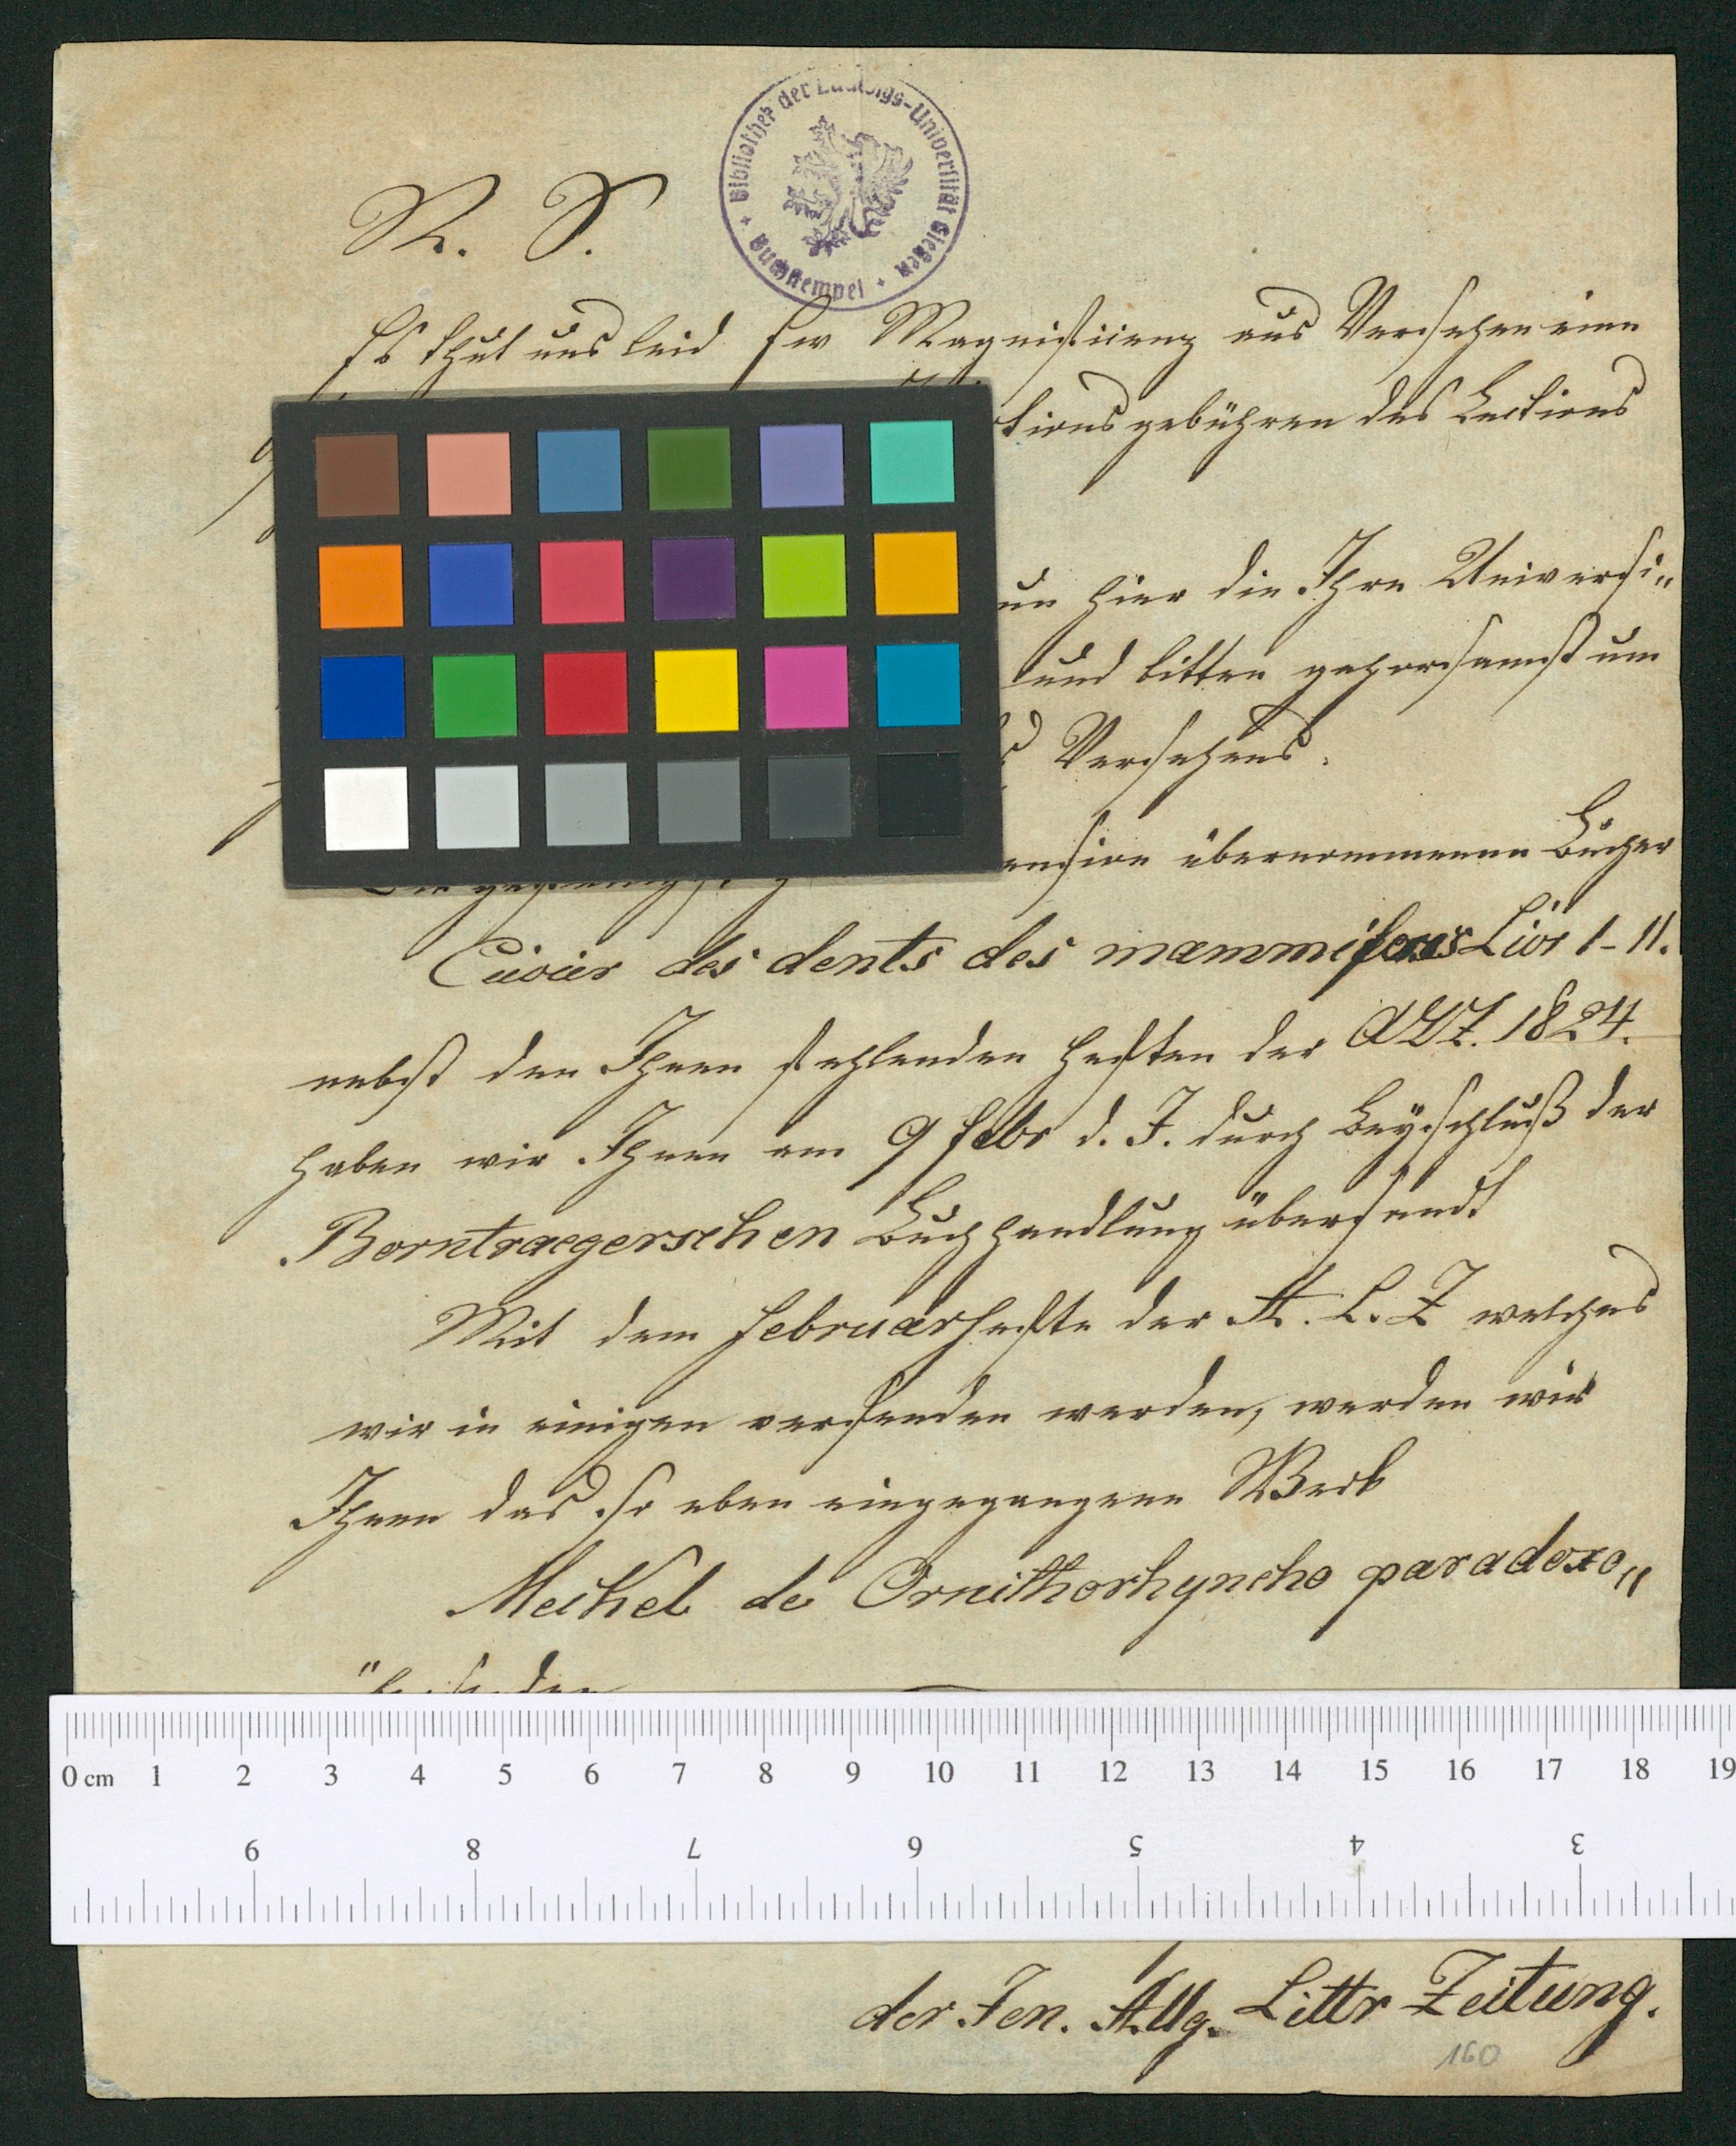 Bibliothek der Ludwigs-Universität Gießen
Buchstempel
N. S.
Es thut uns leid Ew Magnificenz aus Versehen eine
tionsgebühren des Lections
hier die Ihre Universi„
und bitten gehorsamst um
Versehens.
ension übernommenen Bücher
Cuvier des dents des mammiferes Livr 1-11.
nebst den Ihnen fehlenden Heften der ALZ. 1824.
haben wir Ihnen am 9 Febr d. J. durch Beyschluß der
Borntraegerschen Buchhandlung übersandt
Mit dem Februarhefte der A. L. Z welches
wir in einigen versenden werden, werden wir
Ihnen das so eben eingegangene Werk
Meckel de Ornithorhyncho paradoxo„
0 cm 1 2 3 4 5 6 7 8 9 10 11 12 13 14 15 16 17 18 19
9 8 7 6 5 4 3
der Jen. Allg. Littr Zeitung.
160